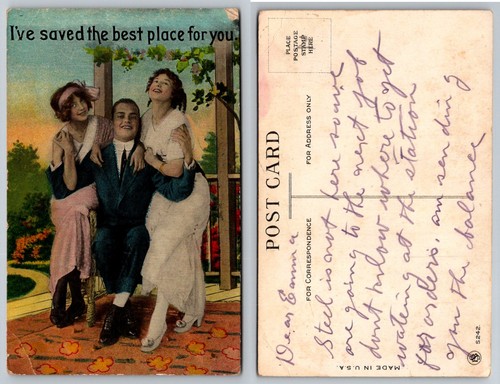 I've saved the best place for you.
PLACE
POSTAGE
STAMP
HERE
POST CARD
FOR CORRESPONDENCE
FOR ADDRESS ONLY
Dear Emma
Steel is not here so we
are going to the next job
dont know where to yet
waiting at the station
for orders, am sending
you the balance
MADE IN U.S.A.
S242